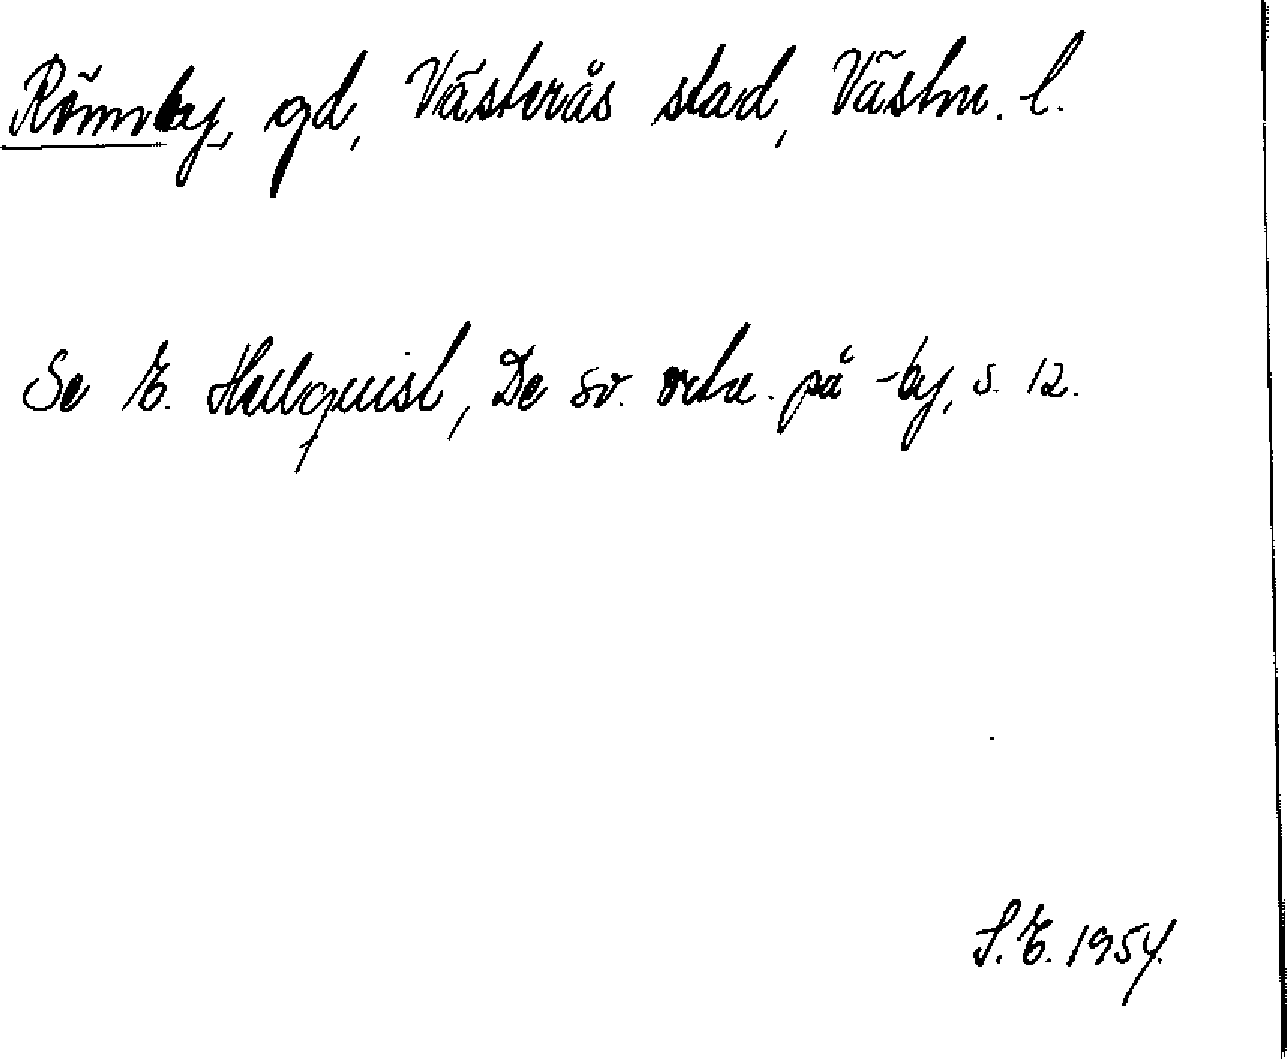 Rönnby, gd, Västerås stad, Västm. l.
Se E. Hellquist, De sv. ortn. på -by, s. 12.
S. E. 1954.